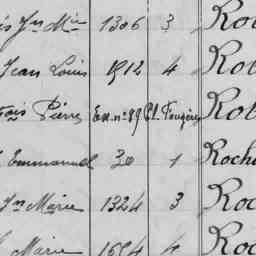 Jn Min 1306 3 Rob
Jean Louis 1912 4 Rob
çois Pierre Ex. nº 89 Ct. Fougères Rob
Emmanuel 30 1 Roche
Jn Marie 1324 3 Roc
Marie 1654 4 Roc